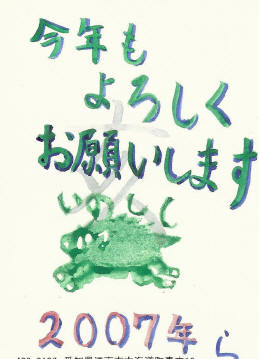 今年も
よろしく
亥
お願いします
いのしし
2007年 ら